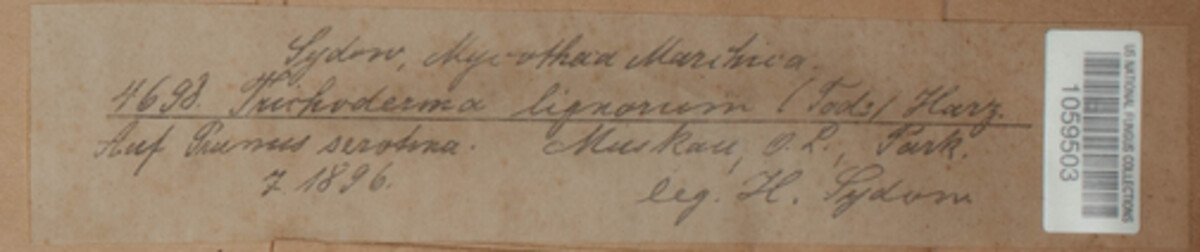 Sydow, Mycothaca Marchica.
4698. Trichoderma lignorum (Tode) Harz.
Auf Prunus serotina. Muskau, O. L., Park.
7 1896. leg. H. Sydow
US NATIONAL FUNGUS COLLECTIONS
1059503